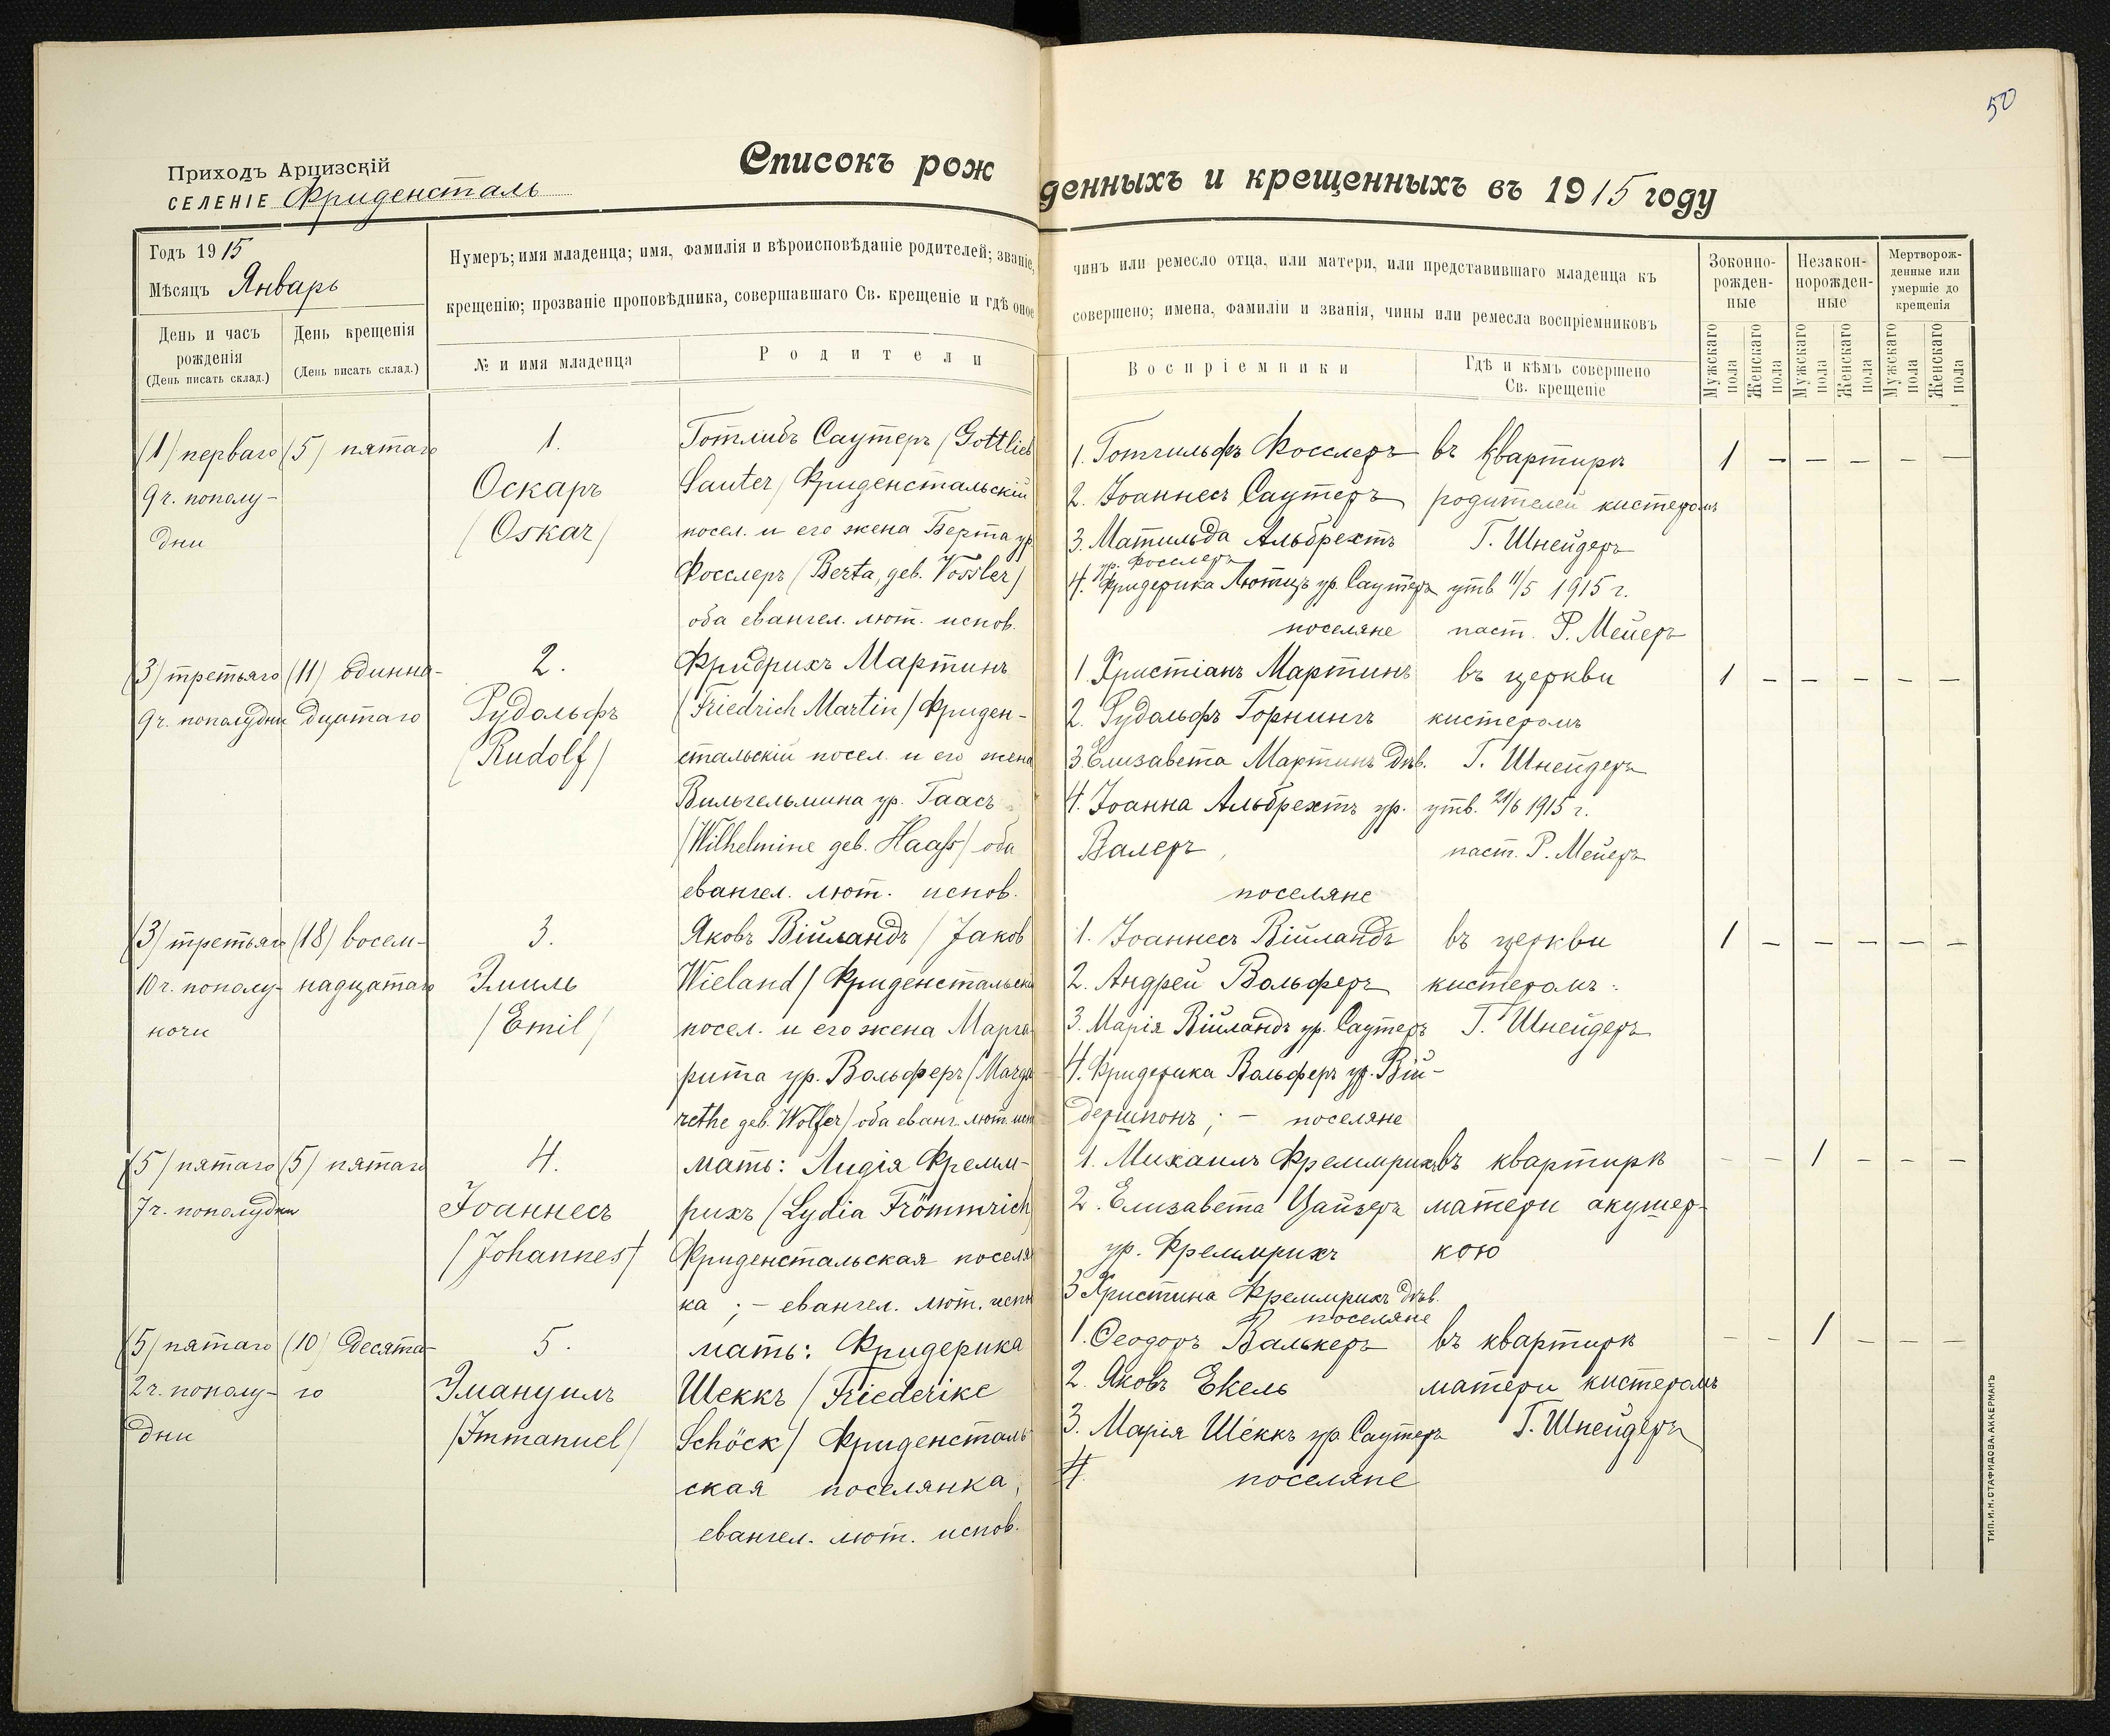 50
Приходъ Арцизскій
СЕЛЕНІЕ Фриденсталь
Списокъ рожденныхъ и крещенныхъ въ 1915 году
Годъ 1915
Мѣсяцъ Январь
День и часъ рожденія
(День писать склад.)
День крещенія
(День писать склад.)
Нумеръ; имя младенца; имя, фамилія и вѣроисповѣданіе родителей; званіе, чинъ или ремесло отца, или матери, или представившаго младенца къ
крещенію; прозваніе проповѣдника, совершавшаго Св. крещеніе и гдѣ оное совершено; имена, фамиліи и званія, чины или ремесла воспріемниковъ
№ и имя младенца
Родители
Воспріемники
Гдѣ и кѣмъ совершено
Св. крещеніе
Зоконно-
рожден-
ные
Незакон-
норожден-
ные
Мертворож-
денные или
умершіе до
крещенія
Мужскаго пола
Женскаго пола
Мужскаго пола
Женскаго пола
Мужскаго пола
Женскаго пола
(1) перваго
9 ч. пополу-
дни
(5) пятаго
1.
Оскаръ
(Oskar)
Готлибъ Саутеръ (Gottlieb
Sauter) Фриденстальскій
посел. и его жена Берта ур.
Фосслеръ (Berta, geb. Vossler)
оба евангел. лют. испов.
1. Готгильфъ Фосслеръ
2. Іоаннесъ Саутеръ
3. Матильда Альбрехтъ
ур. Фосслеръ
4. Фридерика Лютцъ ур. Саутеръ
поселяне
въ квартирѣ
родителей кистеромъ
Г. Шнейдеръ
утв 11/5 1915 г.
паст. Р. Мейеръ
1 — — — — —
(3) третьяго
9 ч. пополудни
(11) одинна-
дцатаго
2.
Рудольфъ
(Rudolf)
Фридрихъ Мартинъ
(Friedrich Martin) Фриден-
стальскій посел. и его жена
Вильгельмина ур. Гаасъ
(Wilhelmine geb. Haaß) оба
евангел. лют. испов.
1. Христіанъ Мартинъ
2. Рудольфъ Горнингъ
3. Елизавета Мартинъ дѣв.
4. Іоанна Альбрехтъ ур.
Валеръ,
поселяне
въ церкви
кистеромъ
Г. Шнейдеръ
утв. 21/6 1915 г.
паст. Р. Мейеръ
1 — — — — —
(3) третьяго
10 ч. пополу-
ночи
(18) восем-
надцатаго
3.
Эмиль
(Emil)
Яковъ Війландъ (Jakob
Wieland) Фриденстальскій
посел. и его жена Марга
рита ур. Вольферъ (Marga
rethe geb. Wolfer) оба еванг. лют. исп
1. Іоаннесъ Війландъ
2. Андрей Вольферъ
3. Марія Війландъ ур. Саутеръ
4. Фридерика Вольферъ ур. Вій-
дершпонъ; — поселяне
въ церкви
кистеромъ.
Г. Шнейдеръ
1 — — — — —
(5) пятаго
7 ч. пополудни
(5) пятаго
4.
Іоаннесъ
(Johannes)
мать: Лидія Фремм-
рихъ (Lydia Frömmrich)
Фриденстальская поселя
ка; — евангел. лют. испн
1. Михаилъ Фреммрихъ
2. Елизавета Цайзеръ
ур. Фреммрихъ
3 Христина Фреммрихъ дѣв.
поселяне
въ квартирѣ
матери акушер-
кою
— — 1 — — —
(5) пятаго
2 ч. пополу-
дни
(10) десята-
го
5.
Эмануилъ
(Immanuel)
мать: Фридерика
Шеккъ (Friederike
Schöck) Фриденсталь
ская поселянка;
евангел. лют. испов.
1. Ѳеодоръ Валькеръ
2. Яковъ Екель
3. Марія Шеккъ ур. Саутеръ
4. поселяне
въ квартирѣ
матери кистеромъ
Г. Шнейдеръ
— — 1 — — —
ТИП. И. Н. СТАФИДОВА: АККЕРМАНЪ